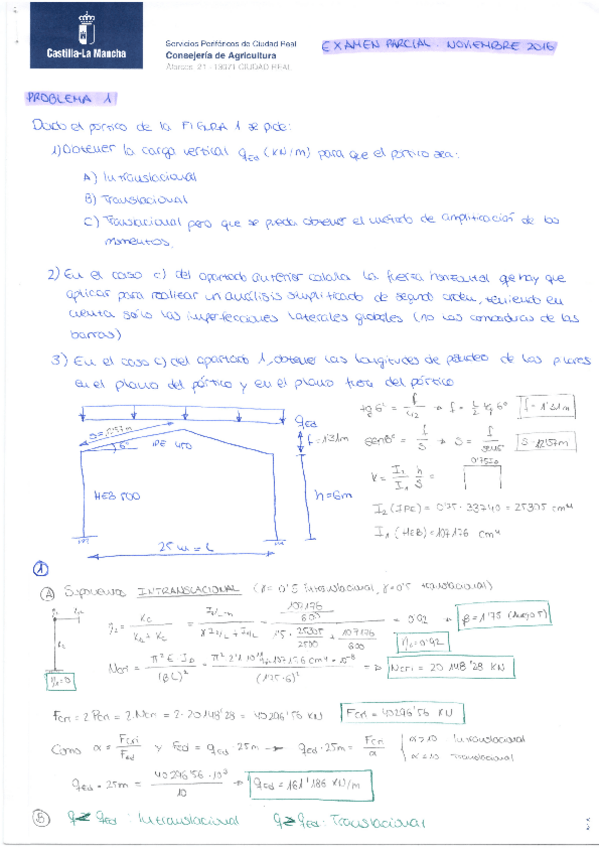 Castilla-La Mancha
Servicios Periféricos de Ciudad Real
Consejería de Agricultura
Alarcos, 21 - 13071 CIUDAD REAL
EXAMEN PARCIAL. NOVIEMBRE 2016
PROBLEMA 1
Dado el pórtico de la FIGURA 1 se pide:
1) Obtener la carga vertical qEd (KN/m) para que el pórtico sea:
A) Intraslacional
B) Traslacional
C) Traslacional pero que se pueda obtener el método de amplificación de los
momentos.
2) En el caso c) del apartado anterior calcula la fuerza horizontal que hay que
aplicar para realizar un análisis simplificado de segundo orden, teniendo en
cuenta sólo las imperfecciones laterales globales (no las combaduras de las
barras)
3) En el caso c) del apartado 1, obtener las longitudes de pandeo de los pilares
en el plano del pórtico y en el plano fuera del pórtico
qEd
S=12'57m
6°
IPE 450
f=1'31m
HEB 500
h=6m
25 m = L
f=1'31m
S=12'57m
0'75I0
I2 (IPE) = 0'75 · 33740 = 25305 cm4
I1 (HEB) = 107176 cm4
1
A Suponemos INTRANSLACIONAL (γ=0'5 intraslacional, γ=1'5 traslacional)
= 0'92
η2=0'92
Ncri = 20148'28 KN
Fcri = 2 Pcri = 2·Ncri = 2·20148'28 = 40296'56 KN
Fcri = 40296'56 KN
Como α = Fcri/Fed y Fed = qEd · 25m → qEd · 25m = Fcri/α
α>10 Intraslacional
α<10 Traslacional
qEd · 25m = 40296'56 · 10³/10 → qEd = 161'186 KN/m
B q < qEd : Intraslacional q > qEd : Traslacional